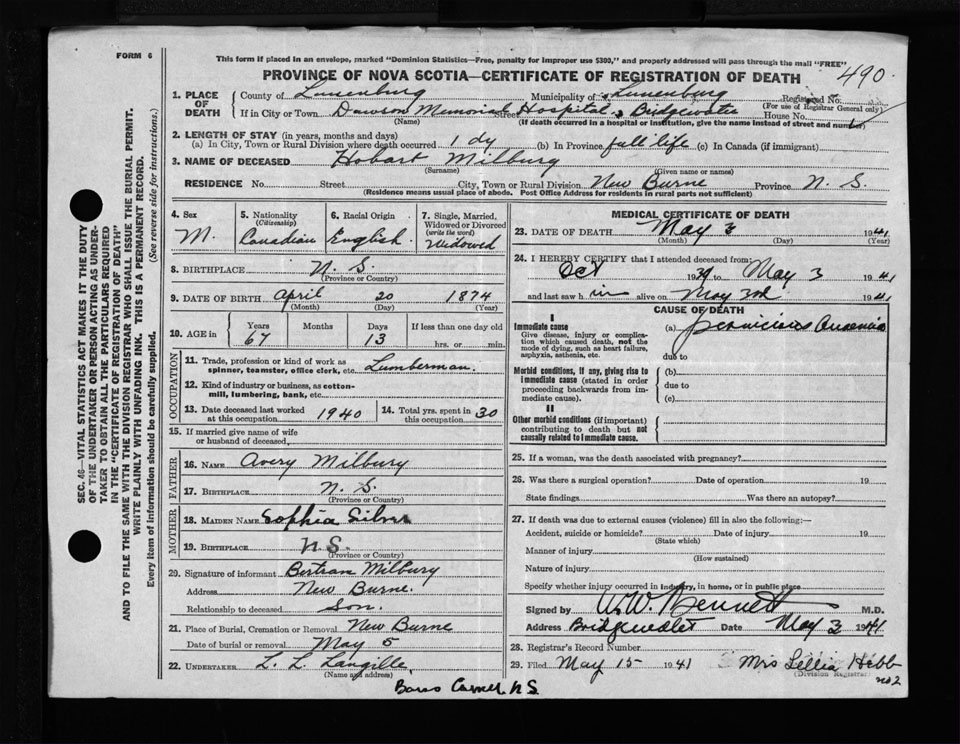 FORM 6
This form if placed in an envelope, marked "Dominion Statistics—Free, penalty for improper use $300," and properly addressed will pass through the mail "FREE"
PROVINCE OF NOVA SCOTIA—CERTIFICATE OF REGISTRATION OF DEATH
490.
1. PLACE OF DEATH
County of Lunenburg Municipality of Lunenburg Registered No.
(For use of Registrar General only)
If in City or Town Dawson Memorial Street Hospital, Bridgewater House No.
(Name) (If death occurred in a hospital or institution, give the name instead of street and number)
2. LENGTH OF STAY (in years, months and days)
(a) In City, Town or Rural Division where death occurred 1 dy (b) In Province full life (c) In Canada (if immigrant)
3. NAME OF DECEASED Hobart Milbury
(Surname) (Given name or names)
RESIDENCE No. Street City, Town or Rural Division New Burne Province N. S.
(Residence means usual place of abode. Post Office Address for residents in rural parts not sufficient)
4. Sex M.
5. Nationality (Citizenship) Canadian
6. Racial Origin English.
7. Single, Married, Widowed or Divorced (write the word) Widowed
8. BIRTHPLACE N. S.
(Province or Country)
9. DATE OF BIRTH April 20 1874
(Month) (Day) (Year)
10. AGE in Years 67 Months Days 13 If less than one day old hrs. or min.
OCCUPATION
11. Trade, profession or kind of work as spinner, teamster, office clerk, etc. Lumberman.
12. Kind of industry or business, as cotton-mill, lumbering, bank, etc.
13. Date deceased last worked at this occupation 1940
14. Total yrs. spent in this occupation 30
15. If married give name of wife or husband of deceased
FATHER
16. NAME Avery Milbury
17. BIRTHPLACE N. S.
(Province or Country)
MOTHER
18. MAIDEN NAME Sophia Silver
19. BIRTHPLACE N.S.
(Province or Country)
20. Signature of informant Bertram Milbury
Address New Burne.
Relationship to deceased Son.
21. Place of Burial, Cremation or Removal New Burne
Date of burial or removal May 5
22. UNDERTAKER L. L. Langille,
(Name and address)
N S.
MEDICAL CERTIFICATE OF DEATH
23. DATE OF DEATH May 3 1941
(Month) (Day) (Year)
24. I HEREBY CERTIFY that I attended deceased from:
Oct 1939 to May 3 1941
and last saw h im alive on May 3rd 1941
CAUSE OF DEATH
I
Immediate cause
Give disease, injury or complication which caused death, not the mode of dying, such as heart failure, asphyxia, asthenia, etc.
(a) pernicious Anaemia
due to
Morbid conditions, if any, giving rise to immediate cause (stated in order proceeding backwards from immediate cause).
(b)
due to
(c)
II
Other morbid conditions (if important) contributing to death but not causally related to immediate cause.
25. If a woman, was the death associated with pregnancy?
26. Was there a surgical operation? Date of operation 19
State findings Was there an autopsy?
27. If death was due to external causes (violence) fill in also the following:—
Accident, suicide or homicide? Date of injury 19
(State which)
Manner of injury
(How sustained)
Nature of injury
Specify whether injury occurred in industry, in home, or in public place
Signed by Bennett M.D.
Address Bridgewater Date May 3 1941
28. Registrar's Record Number
29. Filed May 15 1941 Mrs Lellia Hebb
(Division Registrar)
no 2
SEC. 46—VITAL STATISTICS ACT MAKES IT THE DUTY OF THE UNDERTAKER OR PERSON ACTING AS UNDERTAKER TO OBTAIN ALL THE PARTICULARS REQUIRED IN THE "CERTIFICATE OF REGISTRATION OF DEATH"
AND TO FILE THE SAME WITH THE DIVISION REGISTRAR WHO SHALL ISSUE THE BURIAL PERMIT.
WRITE PLAINLY WITH UNFADING INK. THIS IS A PERMANENT RECORD.
Every item of information should be carefully supplied. (See reverse side for instructions.)